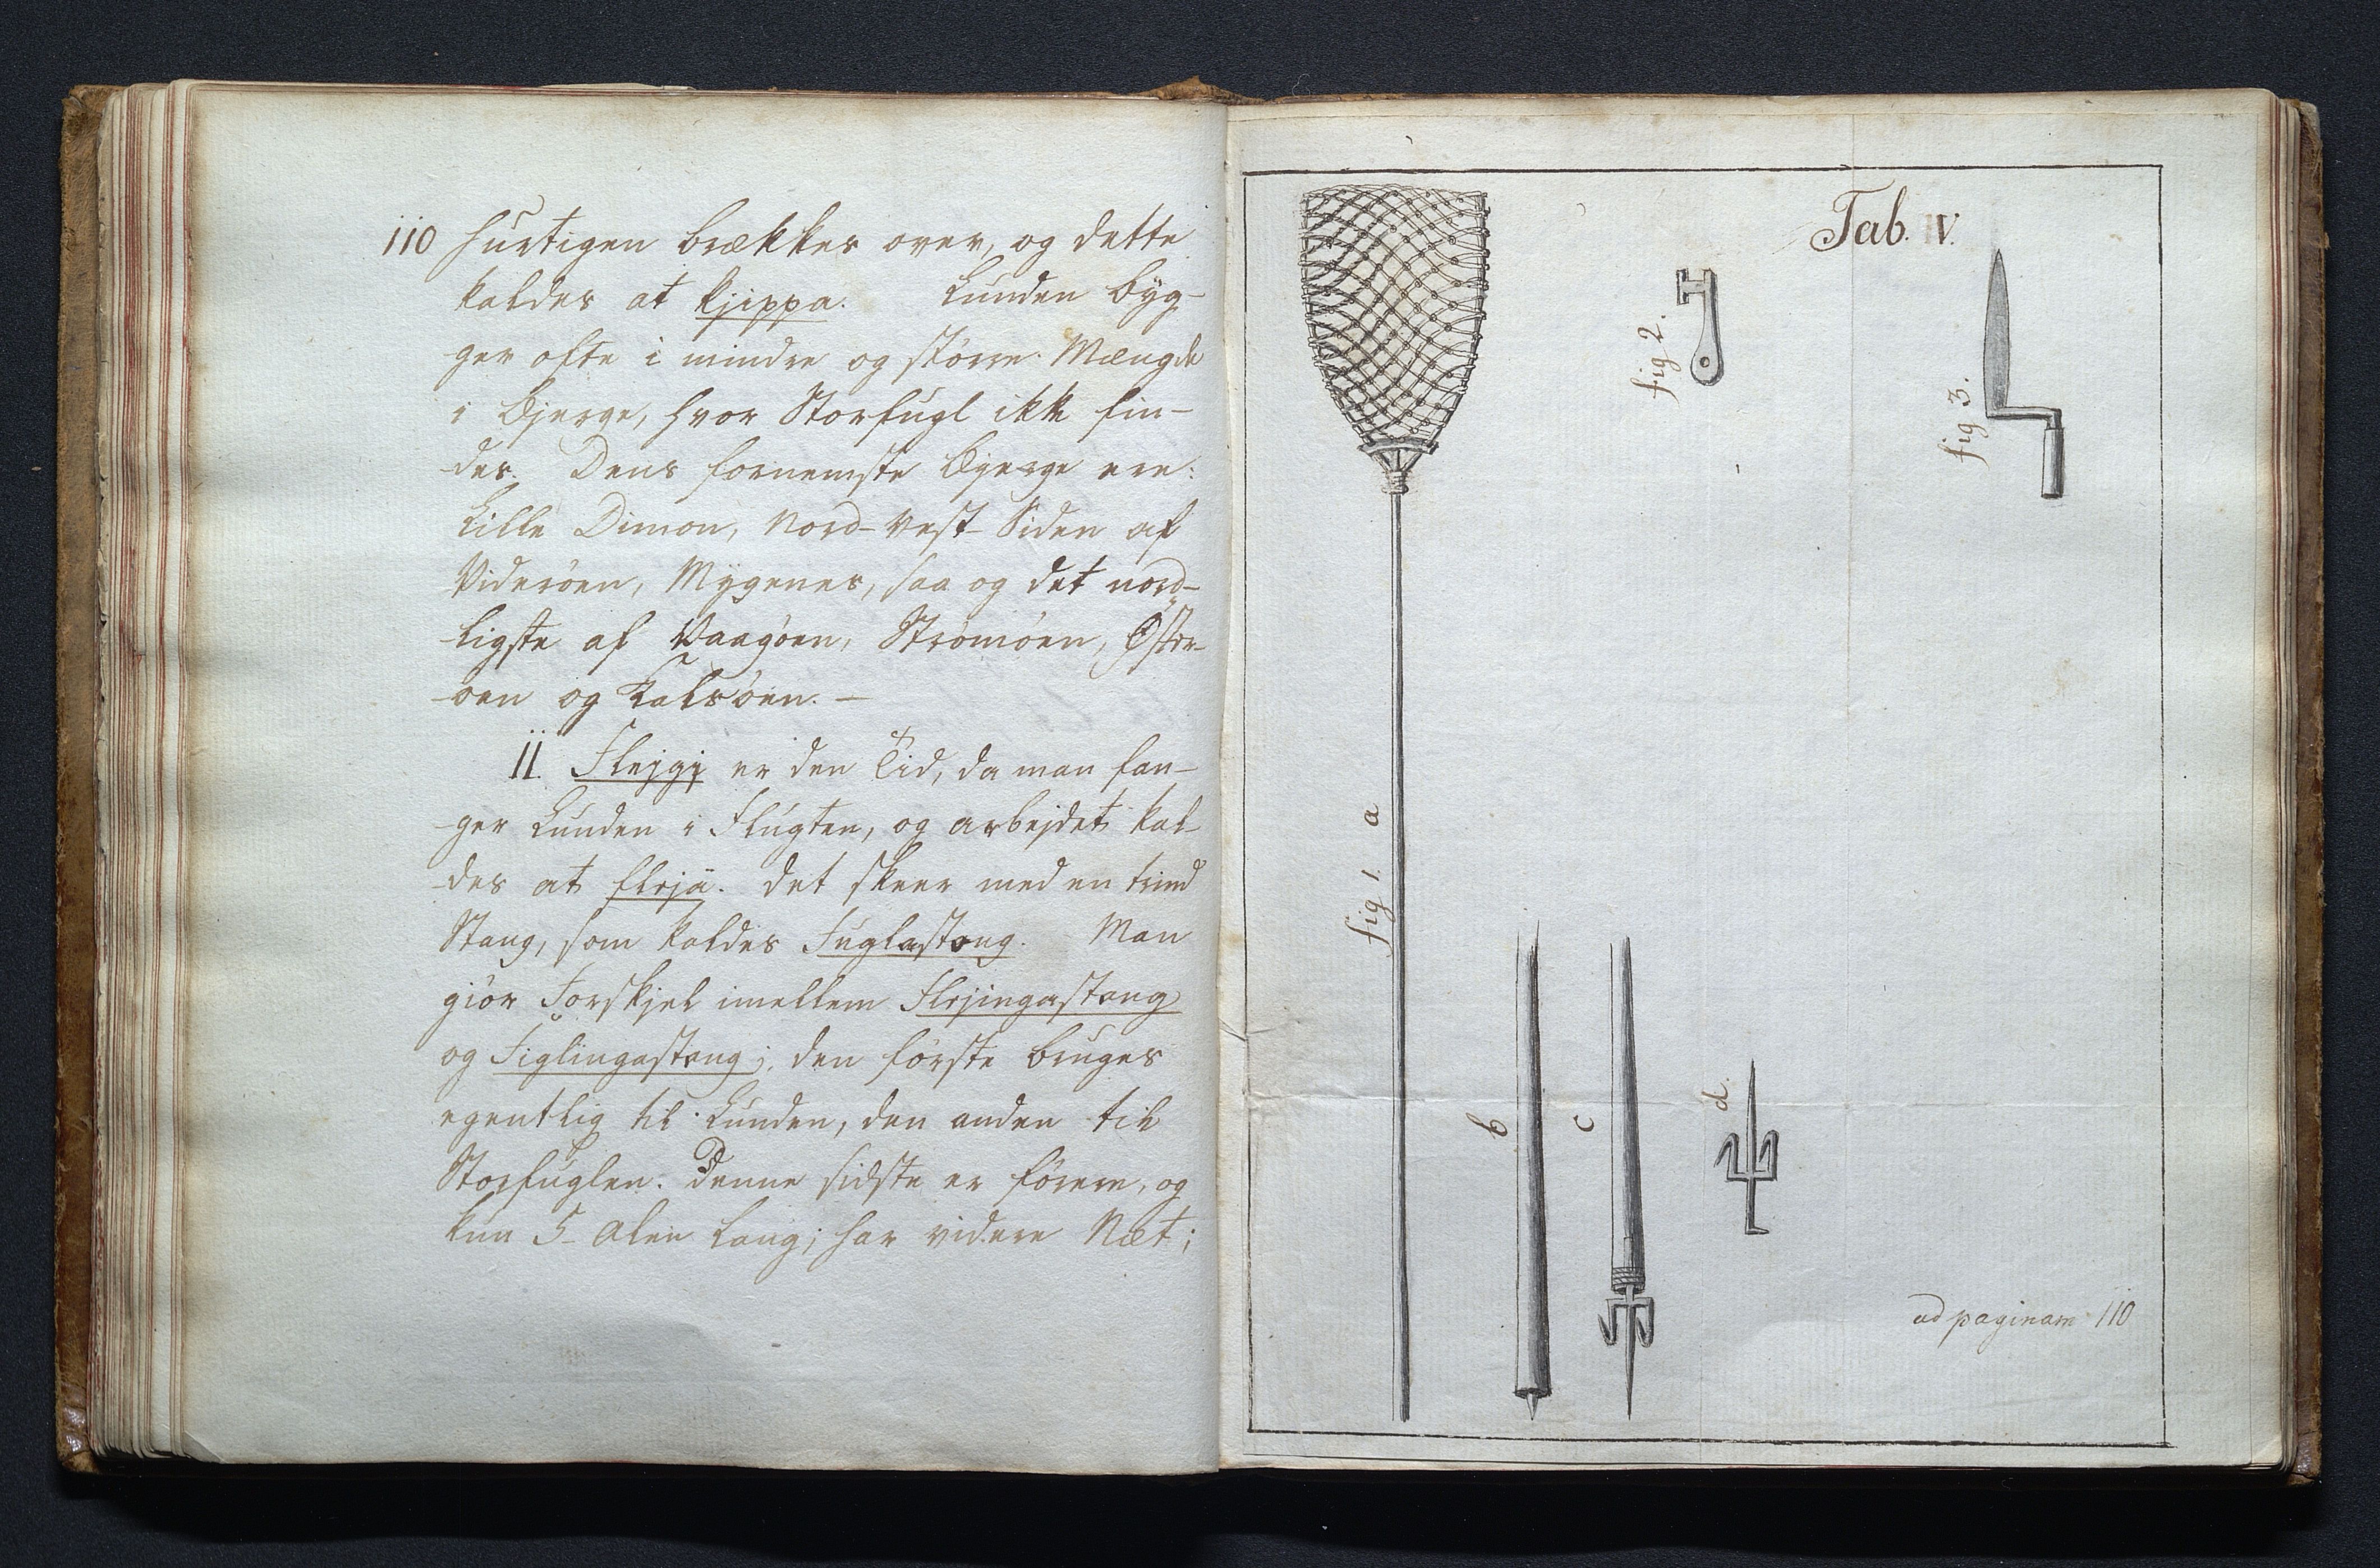 110 hurtigen brækkes over, og dette
kaldes at kjippa. Lunden byg-
ger ofte i mindre og större Mængde
i Bjerge, hvor Storfugl ikke fin-
des. Dens fornemste Bjerge ere:
Lille Dimon, Nord-Vest-Siden af
Videröen, Mygenes, saa og det nord-
ligste af Vaagöen, Strömöen, Öster-
öen og Kalsöen. –
II. Flejgi er den Tid, da man fan-
ger Lunden i Flugten, og arbejdet kal-
des at fleja. Det skeer med en trind
Stang, som kaldes Fuglastong. Man
giör Forskjel imellem Flejingastong
og Figlingastong; den förste bruges
egentlig til Lunden, den anden til
Storfuglen. Denne sidste er förere, og
kun 5 Alen lang; har videre Næt;
Tab. IV.
fig 1. a
fig 2.
fig 3.
b
c
d.
ad paginam 110